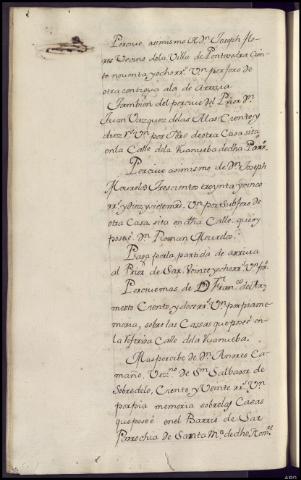 Percive asimismo de Dn. Joseph Flo-
res Vecino dela Villa de Pontevedra Cien-
to noventa y ocho rr.s Vn por foro de
otra contigua ala de Arriva
Tambien del percive del Prior Dn.
Juan Vazquez delas Alas Ciento y
diez r.s Vn por Iltro de otra Casa sita
en la Calle dela Rianueba dedha Parr.a
Percive asimismo de Dn. Joseph
Mourelo trescientos treynta y cinco
rr.s y diez y siete mrs. Vn por Subforo de
otra Casa sita en dha Calle, que oy
posehe Dn. Roman Mourelo.
Paga por la partida de arriva
al Prior de Sar Veinte y ocho rr.s Vn for.
Percive mas de Dn Fran.co de Ar-
metto Ciento y doce rr.s Vn por pia me-
moria, sobre las Cassas que posehe en
la Referida Calle dela Rianueba.
Mas percibe de Dn. Andres Ca-
maño, Vez.no de Sn. Salbador de
Sobredelo, Ciento y Veinte rr.s Vn
por pia memoria sobre las Casas
que posehe en el Barrio de Sar
Parrochia de Santa Ma. de dho Nom.e